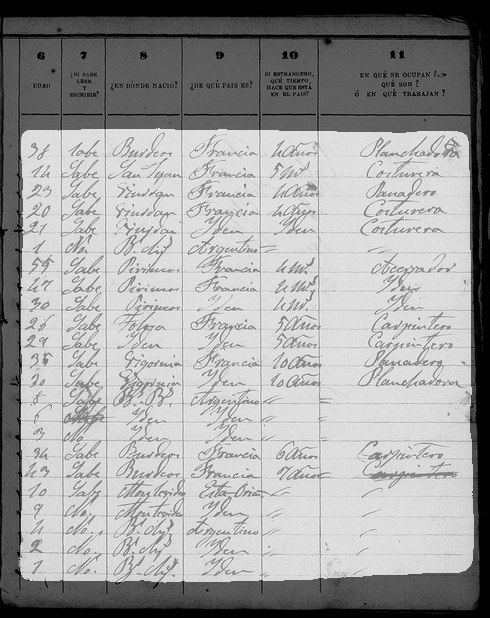 6 7 8 9 10 11
EDAD ¿NI SABE LEER Y ESCRIBIR? ¿EN DÓNDE NACIÓ? ¿DE QUÉ PAIS ES? SI ESTRANGERO, QUÉ TIEMPO HACE QUE ESTÁ EN EL PAIS? EN QUÉ SE OCUPAN? QUÉ SON? Ó EN QUÉ TRABAJAN?
38 Sabe Burdeos Francia 4 Años Planchadora
14 Sabe San Juan Francia 5 Costurera
23 Sabe Francia 4 Años Panadero
20 Sabe Francia 4 Años Costurera
21 Sabe Yden Yden Costurera
1 No Bs Ays Argentino " "
55 Sabe Pirineos Francia 4 Acepador
47 Sabe Pirineos Francia 4 Yden
30 Sabe Pirineos Yden 4 Yden
26 Sabe Tolosa Francia 5 Años Carpintero
29 Sabe Yden Yden 5 Años Carpintero
35 Sabe Francia 10 Años Panadero
20 Sabe Yden 10 Años Planchadora
8 Sabe Bs. As. Argentino " "
6 Yden Yden " "
3 No Yden Yden " "
34 Sabe Burdeos Francia 6 Años Carpintero
43 Sabe Burdeos Francia 7 Años Carpintero
10 Sabe Montevideo Esta Orien " "
9 No, Montevideo Yden " "
4 No, Bs Ays Argentino " "
2 No, Bs Ays Yden " "
1 No. Bs Ays. Yden " "